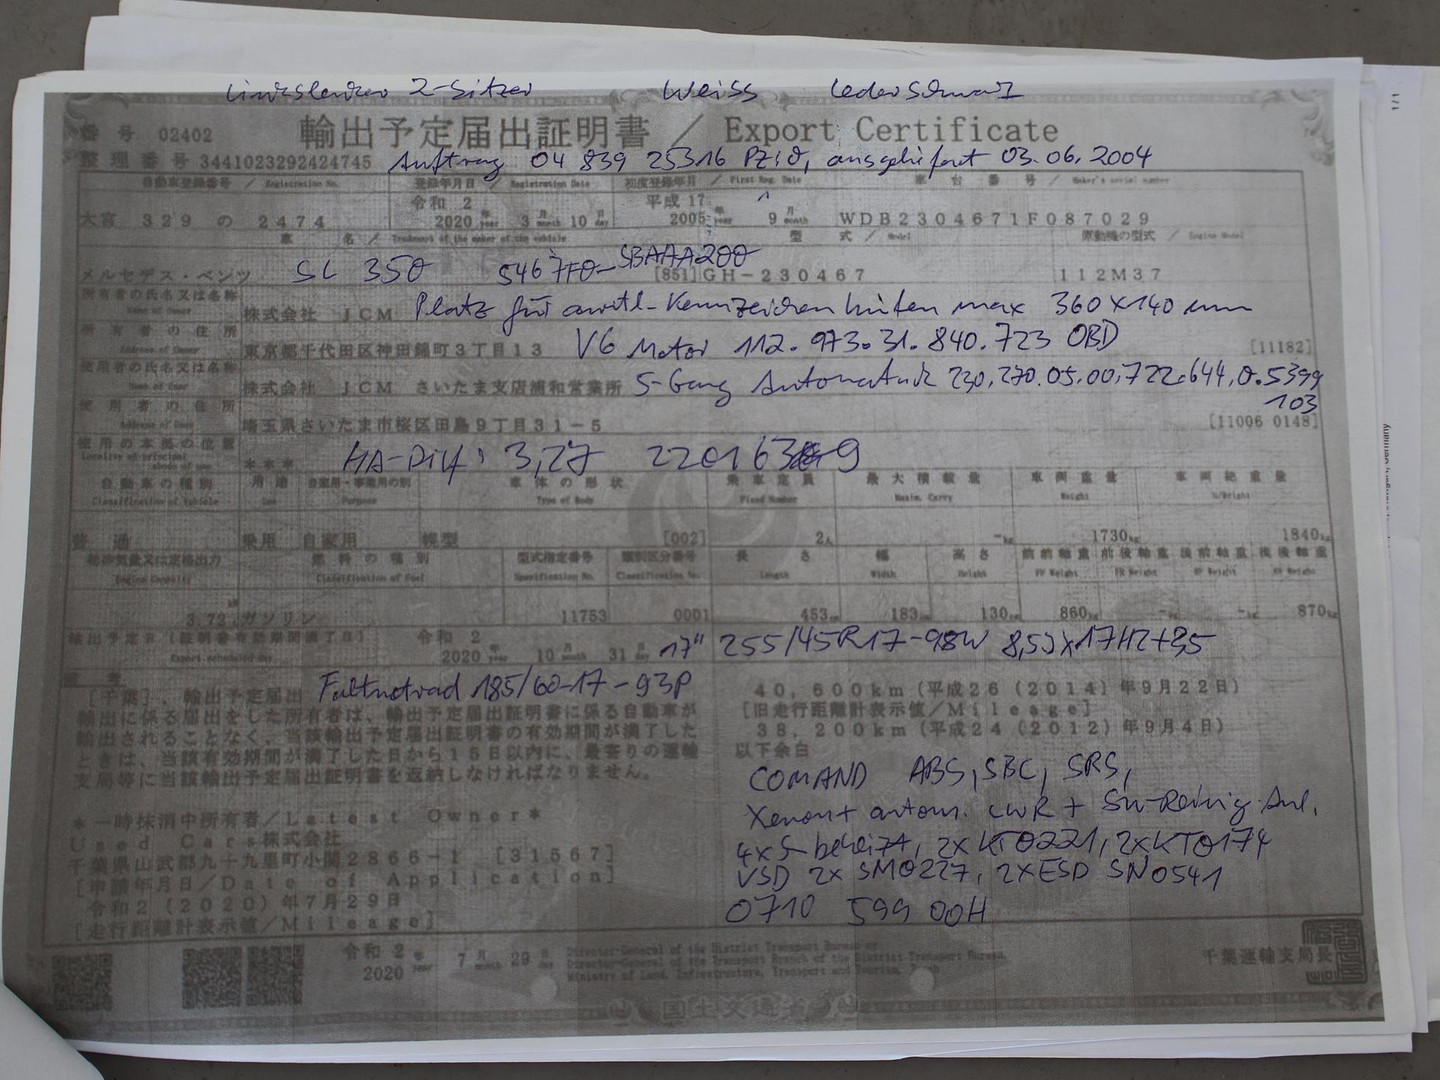 Linkslenker 2-Sitzer Weiss Leder Schwarz
番号 02402
輸出予定届出証明書 / Export Certificate
整理番号 3441023292424745 Auftrag 04 839 25316 ausgeliefert 03.06.2004
自動車登録番号 / Registration No. 登録年月日 / Registration Date 初度登録年月 / First Reg. Date 車台番号 / Maker's serial number
令和 2 平成 17
大宮 329 の 2474 2020 年 year 3 月 month 10 日 day 2005 年 year 9 月 month WDB2304671F087029
車名 / Trademark of the maker of the vehicle 型式 / Model 原動機の型式 / Engine Model
メルセデス・ベンツ SL 350 [851] GH-230467 112M37
所有者の氏名又は名称 Name of Owner 株式会社 JCM Platz für amtl. Kennzeichen hinten max 360 x 140 mm
所有者の住所 Address of Owner 東京都千代田区神田錦町3丁目13 V6 Motor 112.973.31.840.723 OBD [11182]
使用者の氏名又は名称 Name of User 株式会社 JCM さいたま支店浦和営業所 5-Gang Automatik 230.270.05.00,722.644,0.5399
103
使用者の住所 Address of User 埼玉県さいたま市桜区田島9丁目31-5 [11006 0148]
使用の本拠の位置 Locality of principal abode of use *** HA-Diff: 3,27
自動車の種別 Classification of Vehicle 用途 Use 自家用・事業用の別 Purpose 車体の形状 Type of Body 乗車定員 Fixed Number 最大積載量 Maxim. Carry 車両重量 Weight 車両総重量 G/Weight
普通 乗用 自家用 幌型 [002] 2人 -kg 1730kg 1840kg
総排気量又は定格出力 Engine Capacity 燃料の種別 Classification of Fuel 型式指定番号 Specification No. 類別区分番号 Classification No. 長さ Length 幅 Width 高さ Height 前前軸重 FF Weight 前後軸重 FR Weight 後前軸重 RF Weight 後後軸重 RR Weight
3.72 ガソリン 11753 0001 453cm 183cm 130cm 860kg -kg -kg 870kg
輸出予定日 (証明書有効期間満了日) Export scheduled day 令和 2
2020 年 year 10 月 month 31 日 day 17" 255/45R17-98W 8,5Jx17H2+35
備考
[千葉], 輸出予定届出 Faltnotrad 185/60-17-93P
輸出に係る届出をした所有者は、輸出予定届出証明書に係る自動車が
輸出されることなく、当該輸出予定届出証明書の有効期間が満了した
ときは、当該有効期間が満了した日から15日以内に、最寄りの運輸
支局等に当該輸出予定届出証明書を返納しなければなりません。
*一時抹消中所有者/Latest Owner*
Used Cars株式会社
千葉県山武郡九十九里町小関2866-1 [31567]
[申請年月日/Date of Application]
令和2(2020)年7月29日
[走行距離計表示値/Mileage]
40,600km(平成26(2014)年9月22日)
[旧走行距離計表示値/Mileage]
38,200km(平成24(2012)年9月4日)
以下余白
COMAND ABS, SBC, SRS,
Xenon + autom. LWR + SW-Reinig Anl.
4x S- beheizt, 2x KT0221, 2x KT0174
VSD 2x SM0227, 2x ESD SN0541
0710 599 00H
令和 2
2020 年 year 7 月 month 29 日 day
Director-General of the District Transport Bureau or
Director-General of the Transport Branch of the District Transport Bureau,
Ministry of Land, Infrastructure, Transport and Tourism.
千葉運輸支局長
国土交通省
1/1